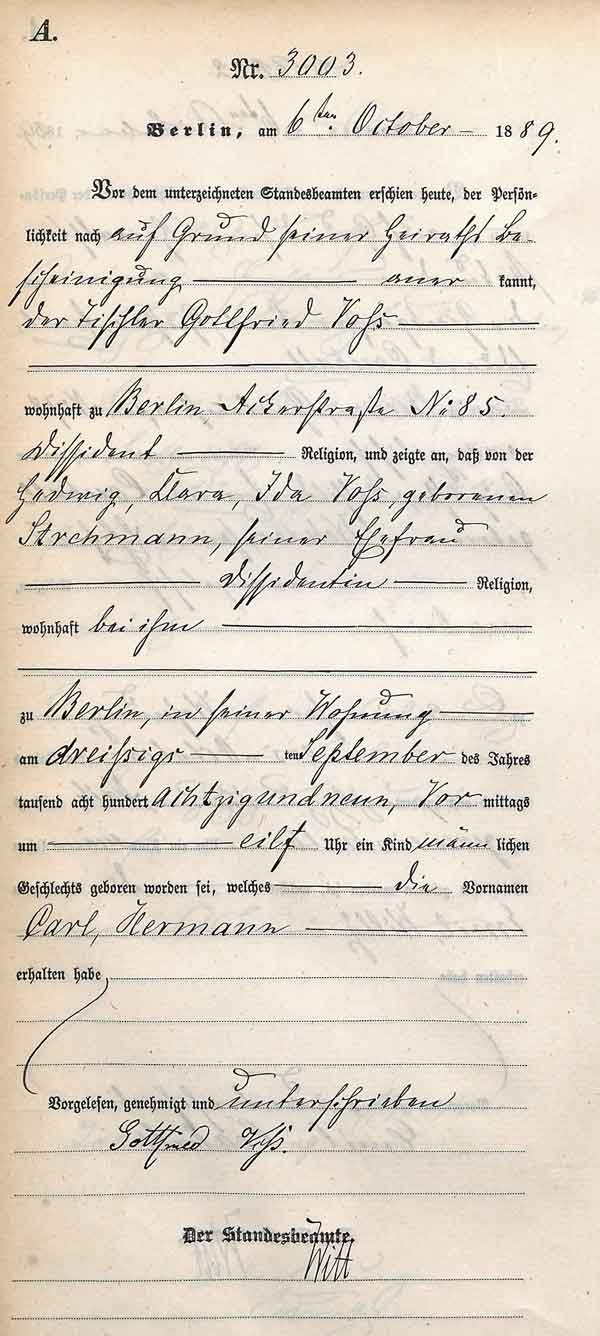 A.
Nr. 3003.
Berlin, am 6ten October 1889.
Vor dem unterzeichneten Standesbeamten erschien heute, der Persön-
lichkeit nach auf Grund seiner Heiraths Be-
scheinigung aner kannt,
der Tischler Gottfried Voss
wohnhaft zu Berlin Ackerstraße No 85.
Dissident Religion, und zeigte an, daß von der
Hedwig, Clara, Ida Voss, geborenen
Strehmann, seiner Ehefrau
Dissidentin Religion,
wohnhaft bei ihm
zu Berlin, in seiner Wohnung
am dreissigs ten September des Jahres
tausend acht hundert achtzigundneun, Vor mittags
um eilf Uhr ein Kind männ lichen
Geschlechts geboren worden sei, welches die Vornamen
Carl, Hermann
erhalten habe
Vorgelesen, genehmigt und unterschrieben
Gottfried Voss.
Der Standesbeamte.
Witt